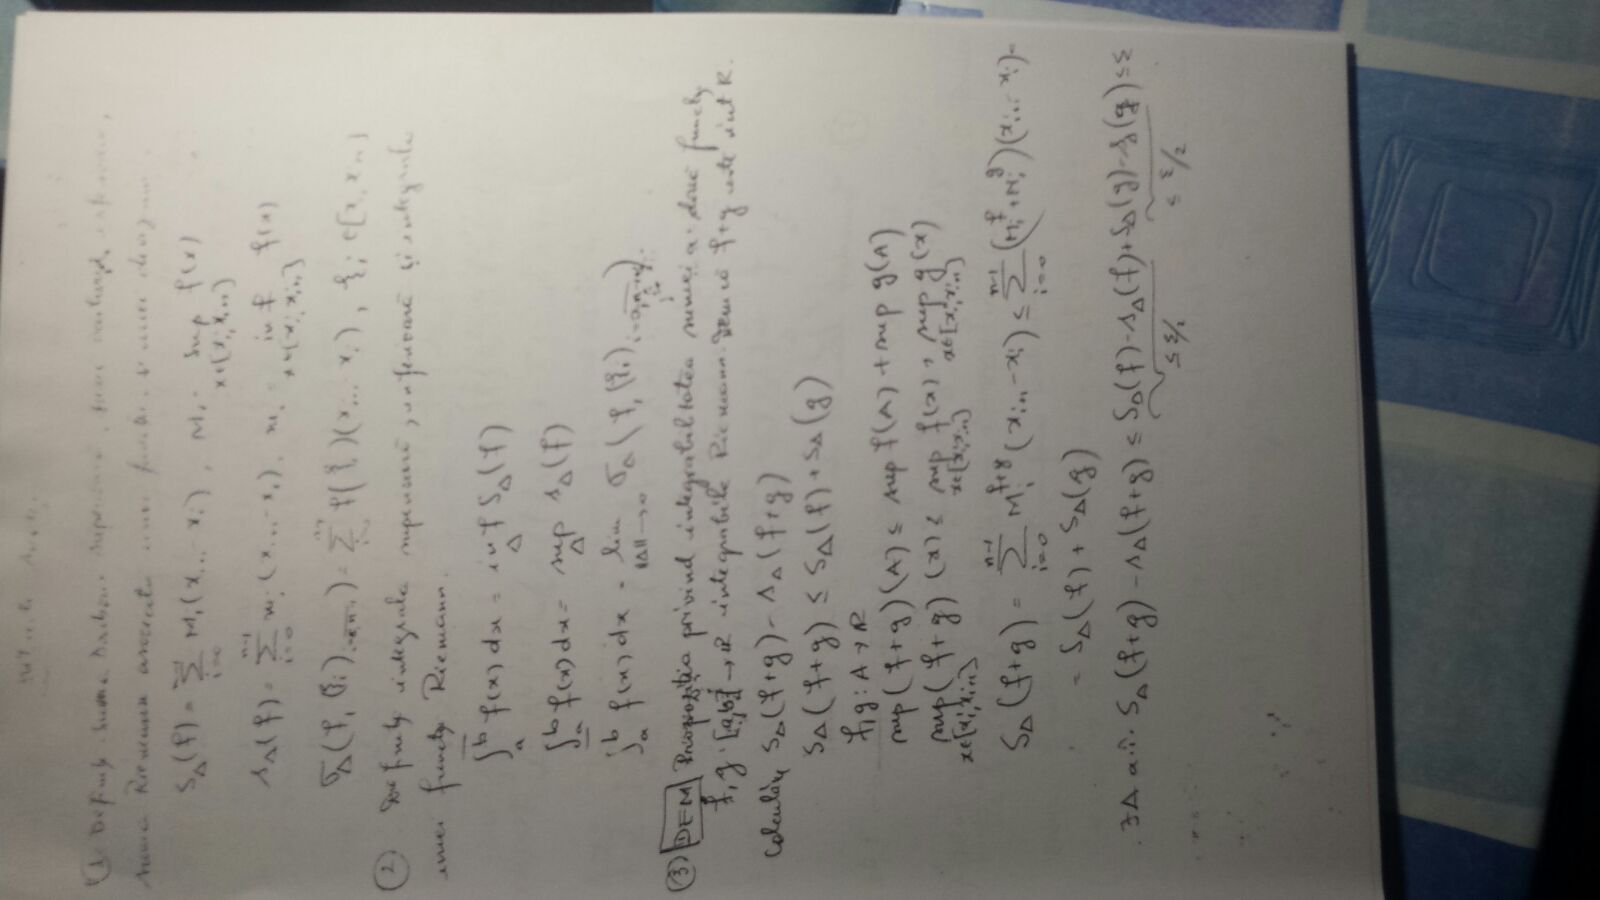 ① Definiți suma Darboux superioară, suma inferioară,
suma Riemann asociate unei funcții și unei diviziuni
S_Δ(f) = Σ_{i=0}^{n-1} M_i (x_{i+1} - x_i), M_i = sup_{x∈[x_i, x_{i+1}]} f(x)
s_Δ(f) = Σ_{i=0}^{n-1} m_i (x_{i+1} - x_i), m_i = inf_{x∈[x_i, x_{i+1}]} f(x)
σ_Δ(f, (ξ_i)) = Σ f(ξ_i)(x_{i+1} - x_i), ξ_i ∈ [x_i, x_{i+1}]
② Definiți integrala superioară, inferioară și integrala
unei funcții Riemann.
∫̅_a^b f(x) dx = inf_Δ S_Δ(f)
∫̲_a^b f(x) dx = sup_Δ s_Δ(f)
∫_a^b f(x) dx = lim_{||Δ||→0} σ_Δ(f, (ξ_i)_{i=0,n-1}).
③ DEM Propoziția privind integrabilitatea sumei a două funcții
f, g : [a,b] → R integrabile Riemann. Dem că f+g este int R.
Calculăm S_Δ(f+g) - s_Δ(f+g)
S_Δ(f+g) ≤ S_Δ(f) + S_Δ(g)
f, g : A → R
sup(f+g)(A) ≤ sup f(A) + sup g(A)
sup_{x∈[x_i, x_{i+1}]} (f+g)(x) ≤ sup_{x∈[x_i, x_{i+1}]} f(x) + sup_{x∈[x_i, x_{i+1}]} g(x)
S_Δ(f+g) = Σ_{i=0}^{n-1} M_i^{f+g} (x_{i+1} - x_i) ≤ Σ_{i=0}^{n-1} (M_i^f + M_i^g)(x_{i+1} - x_i) =
= S_Δ(f) + S_Δ(g)
∃Δ a.î. S_Δ(f+g) - s_Δ(f+g) ≤ S_Δ(f) - s_Δ(f) + S_Δ(g) - s_Δ(g) ≤ ε
≤ ε/2 ≤ ε/2